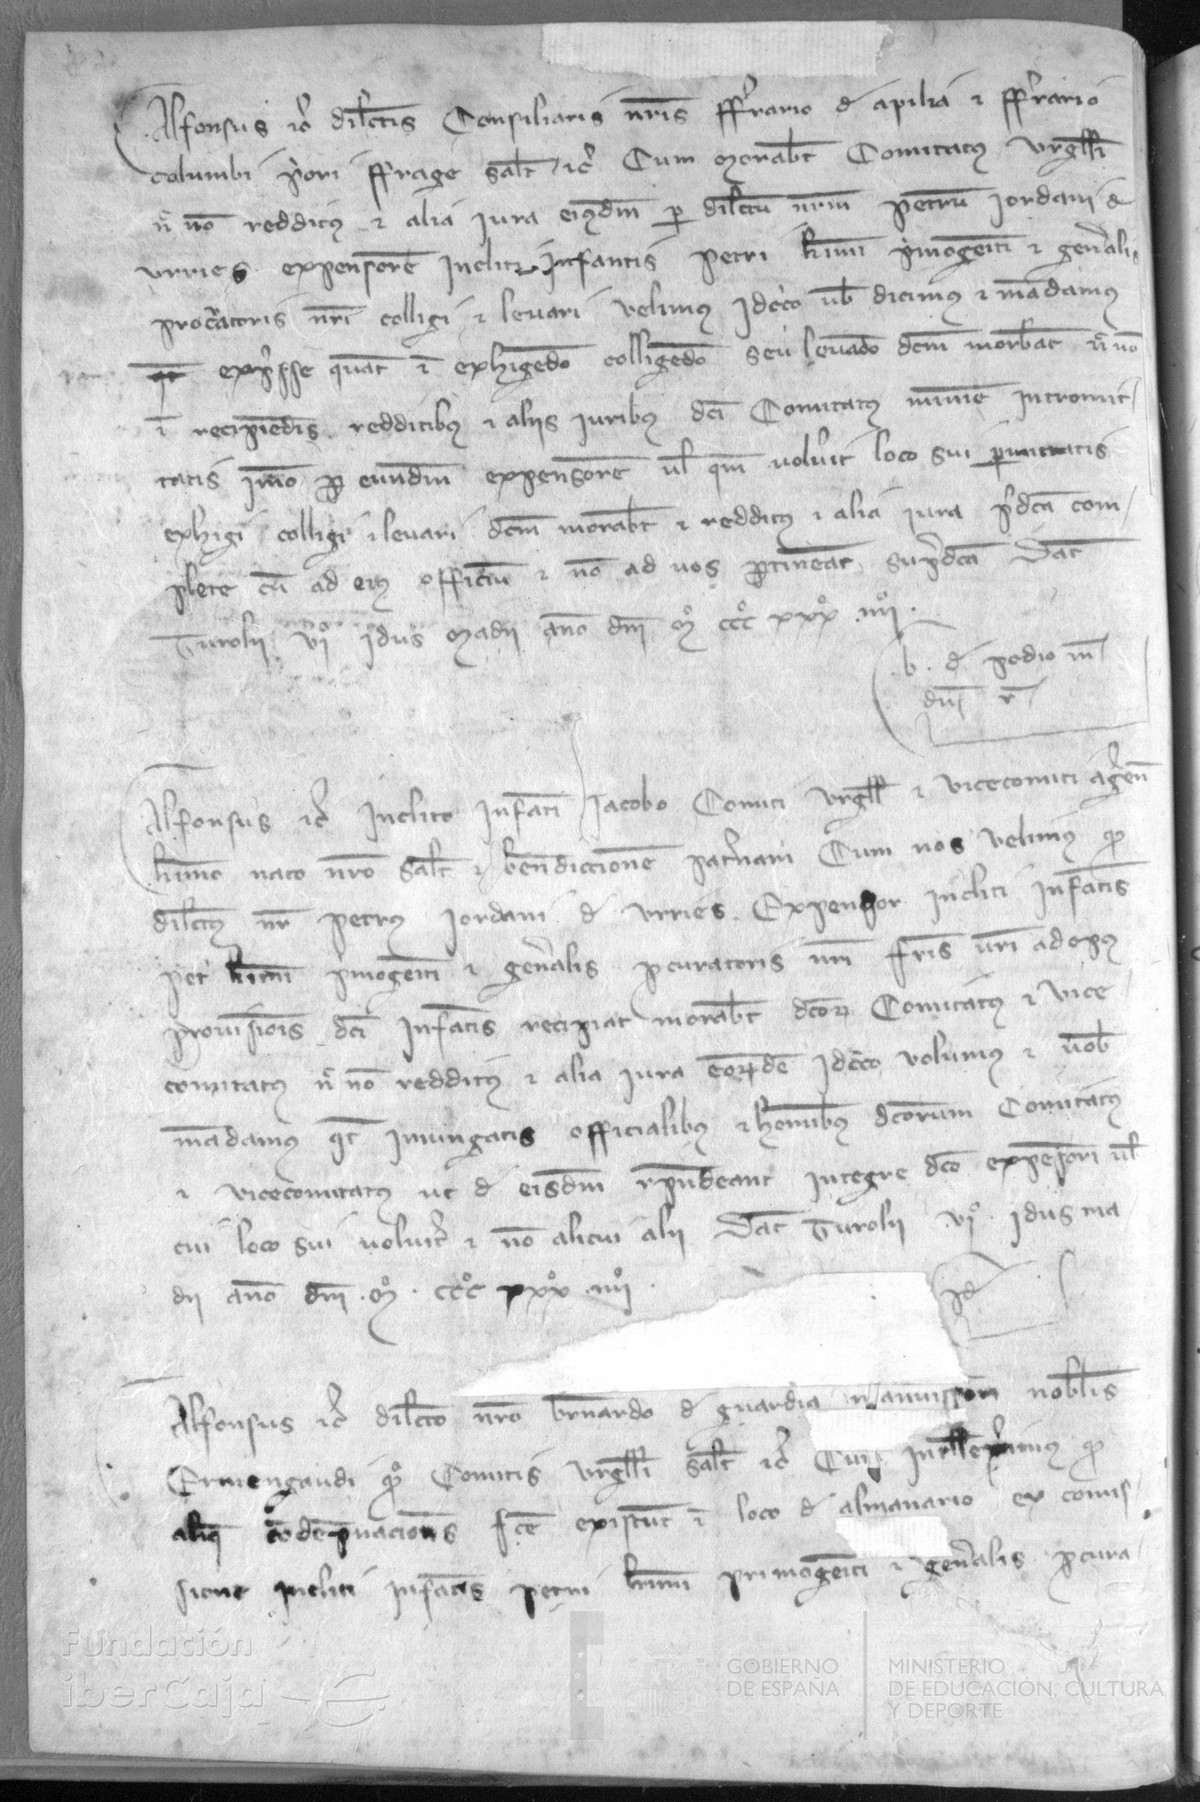 Alfonsus etc dilctis Consiliariis nris fferrario de apilia et fferrario
columbi priori ffrage salt etc Cum morabt Comitatus Urgelli
nec non redditus et alia iura eiusdm per dilctum nrm petrum iordani de
urries expensore Incliti Infantis petri krimi primogeniti et generalis
procuratoris nri colligi et levari velimus Idcirco vob dicimus et mandamus
expresse quatenus in exhigendo colligendo seu levando dcm morabt nec non
in recipiendis redditibus et aliis iuribus dci Comitatus minime intromit
tatis Imo per eundm expensore vl quem voluerit loco sui permittatis
exhigi colligi et levari dcm morabt et redditus et alia iura predca com
plete cum ad eius officium et non ad vos pertineat supradca Dat
Turolii VIº idus Madii anno dni Mº CCCº XXXº IIIIº
b. de podio m
dni r
Alfonsus etc Inclito Infanti Jacobo Comiti Urgelli et vicecomiti ageren
krimo nato nro salt et benediccionem paternam Cum nos velimus quod
dilctus nr petrus Iordani de Urries Expensor incliti Infantis
petri krimi primogeniti et generalis procuratoris nri fris vri ad opus
provisionis dci Infantis recipiat morabt dcorum Comitatus et vice
comitatus nec non redditus et alia iura eorumdem Idcirco volumus et vob
mandamus quatenus iniungatis officialibus et hominibus dcorum Comitatus
et vicecomitatus ut de eisdm respondeant integre dco expensori vl
cui loco sui voluerit et non alicui alii Dat Turolii VIº Idus ma
dii anno dni Mº CCCº XXXº IIIIº
Id
Alfonsus etc dilcto nro bernardo de guardia manumissori nobilis
Ermengaudi quondam Comitis Urgelli salt etc Cum Intellexerimus quod
alique condempnaciones fce existunt in loco de almanario ex comis
sione incliti infantis petri krimi primogeniti et generalis procura
Fundación
iberCaja
GOBIERNO
DE ESPAÑA
MINISTERIO
DE EDUCACIÓN, CULTURA
Y DEPORTE